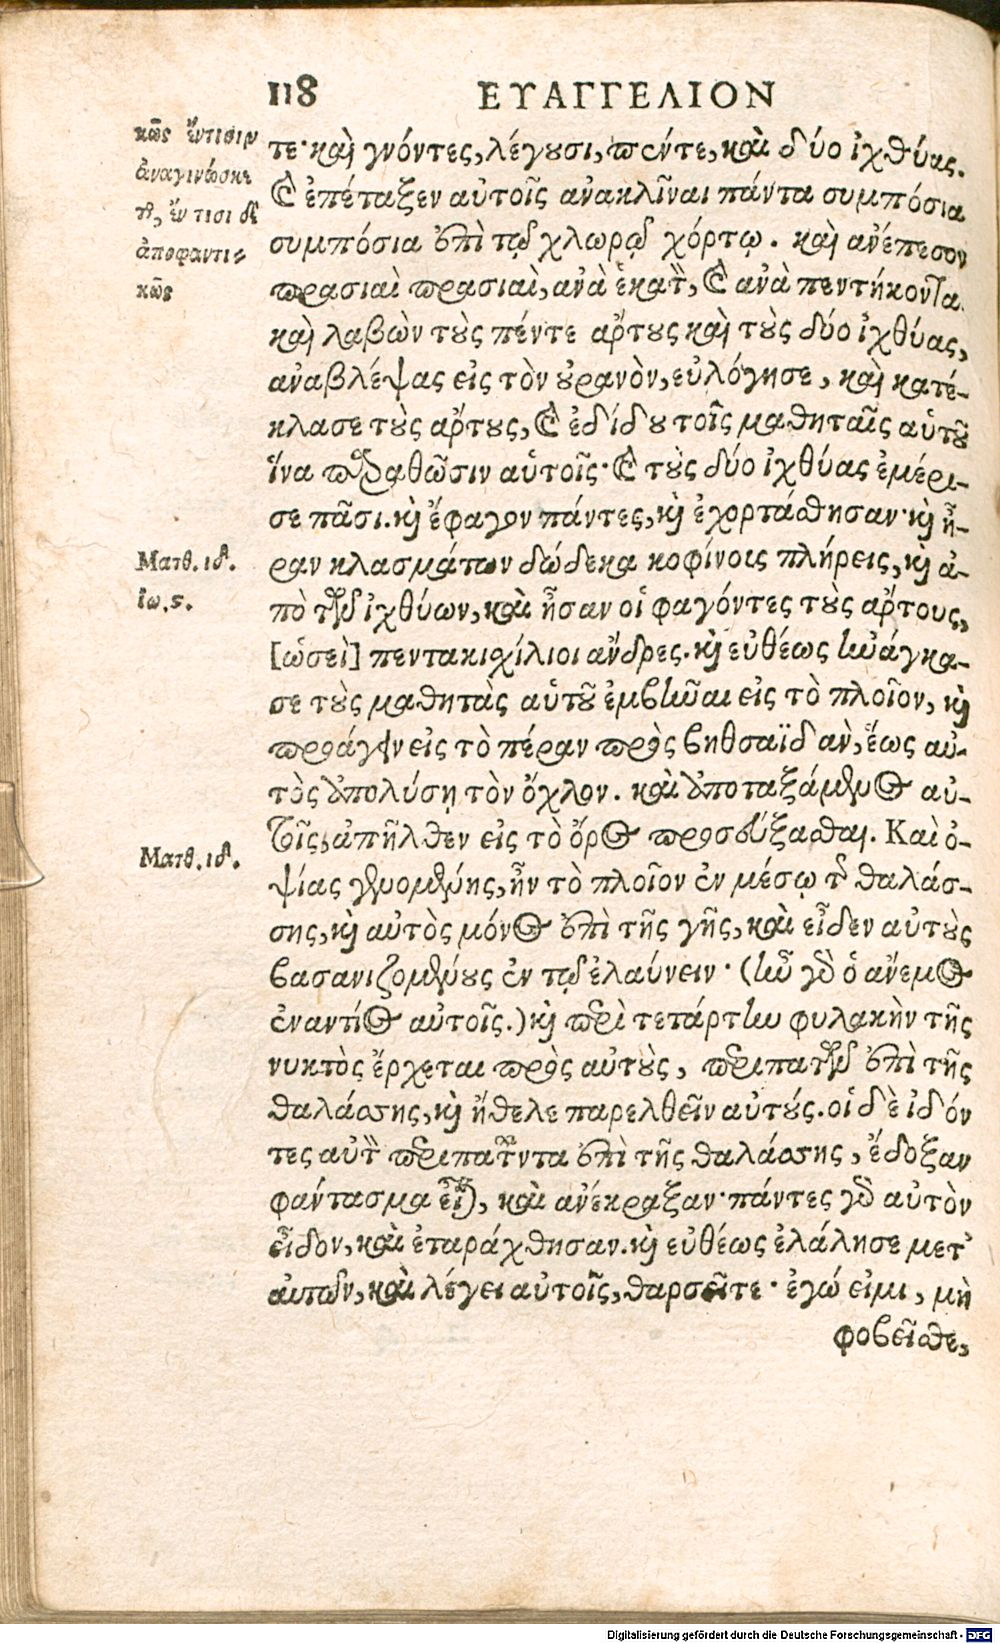 118 ΕΥΑΓΓΕΛΙΟΝ
κῶς ἔντισιν
ἀναγινώσκε
ται, ἔν τισι δὲ
ἀποφαντι-
κῶς
τε· καὶ γνόντες, λέγουσι, πέντε, καὶ δύο ἰχθύας.
καὶ ἐπέταξεν αὐτοῖς ἀνακλῖναι πάντα συμπόσια
συμπόσια ἐπὶ τῷ χλωρῷ χόρτῳ. καὶ ἀνέπεσον
πρασιαὶ πρασιαὶ, ἀνὰ ἑκατὸν, καὶ ἀνὰ πεντήκοντα.
καὶ λαβὼν τοὺς πέντε ἄρτους καὶ τοὺς δύο ἰχθύας,
ἀναβλέψας εἰς τὸν οὐρανὸν, εὐλόγησε, καὶ κατέ-
κλασε τοὺς ἄρτους, καὶ ἐδίδου τοῖς μαθηταῖς αὑτοῦ
ἵνα παραθῶσιν αὐτοῖς· καὶ τοὺς δύο ἰχθύας ἐμέρι-
σε πᾶσι. καὶ ἔφαγον πάντες, καὶ ἐχορτάσθησαν· καὶ ἦ-
Ματθ. ιδ.
ραν κλασμάτων δώδεκα κοφίνοις πλήρεις, καὶ ἀ-
Ιω. ϛ.
πὸ τῶν ἰχθύων, καὶ ἦσαν οἱ φαγόντες τοὺς ἄρτους,
[ὡσεὶ] πεντακιχίλιοι ἄνδρες. καὶ εὐθέως ἠνάγκα-
σε τοὺς μαθητὰς αὑτοῦ ἐμβῆναι εἰς τὸ πλοῖον, καὶ
προάγειν εἰς τὸ πέραν πρὸς βηθσαϊδὰν, ἕως αὐ-
τὸς ἀπολύσῃ τὸν ὄχλον. καὶ ἀποταξάμενος αὐ-
τοῖς, ἀπῆλθεν εἰς τὸ ὄρος προσεύξασθαι. Καὶ ὀ-
Ματθ. ιδ.
ψίας γενομένης, ἦν τὸ πλοῖον ἐν μέσῳ τῆς θαλάσ-
σης, καὶ αὐτὸς μόνος ἐπὶ τῆς γῆς, καὶ εἶδεν αὐτοὺς
βασανιζομένους ἐν τῷ ἐλαύνειν· (ἦν γὰρ ὁ ἄνεμος
ἐναντίος αὐτοῖς.) καὶ περὶ τετάρτην φυλακὴν τῆς
νυκτὸς ἔρχεται πρὸς αὐτοὺς, περιπατῶν ἐπὶ τῆς
θαλάσσης, καὶ ἤθελε παρελθεῖν αὐτούς. οἱ δὲ ἰδόν
τες αὐτὸν περιπατοῦντα ἐπὶ τῆς θαλάσσης, ἔδοξαν
φάντασμα εἶναι, καὶ ἀνέκραξαν· πάντες γὰρ αὐτὸν
εἶδον, καὶ ἐταράχθησαν. καὶ εὐθέως ἐλάλησε μετ'
αὐτῶν, καὶ λέγει αὐτοῖς, θαρσεῖτε· ἐγώ εἰμι, μὴ
φοβεῖσθε,
Digitalisierung gefördert durch die Deutsche Forschungsgemeinschaft - DFG